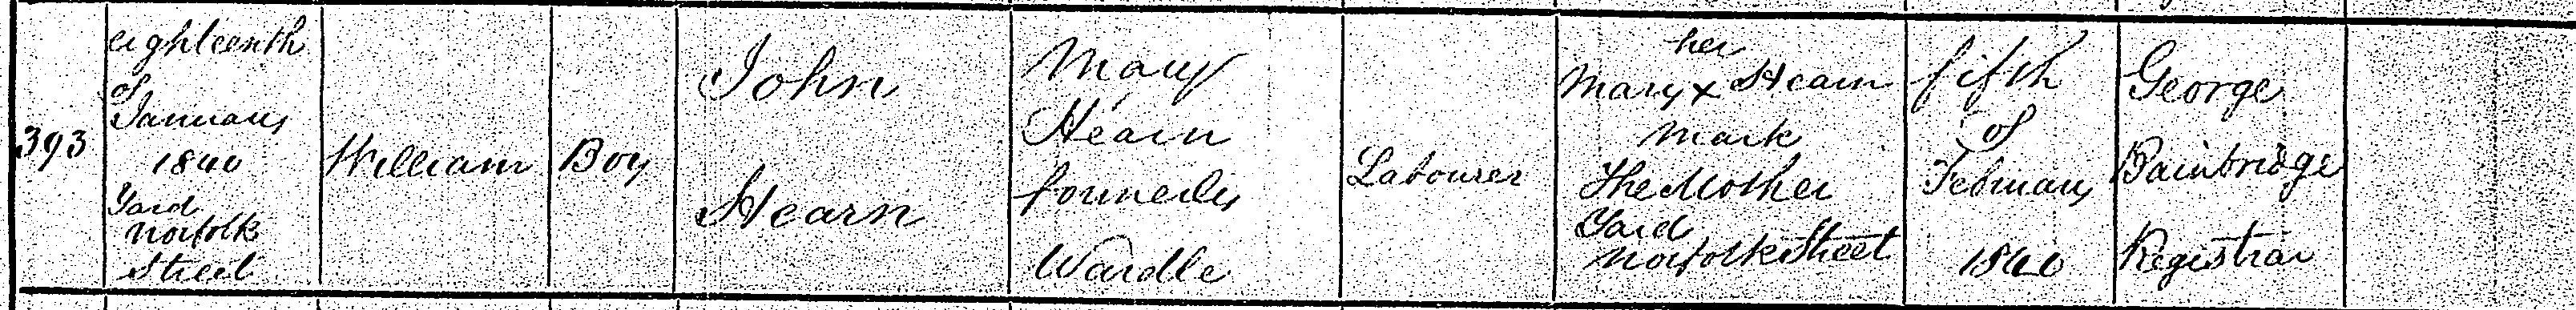 393
eighteenth
of
January
1840
Yard
Norfolk
Street
William
Boy
John
Hearn
Mary
Hearn
formerly
Wardle
Labourer
her
Mary x Hearn
Mark
The Mother
Yard
Norfolk Street
fifth
of
February
1840
George
Bainbridge
Registrar